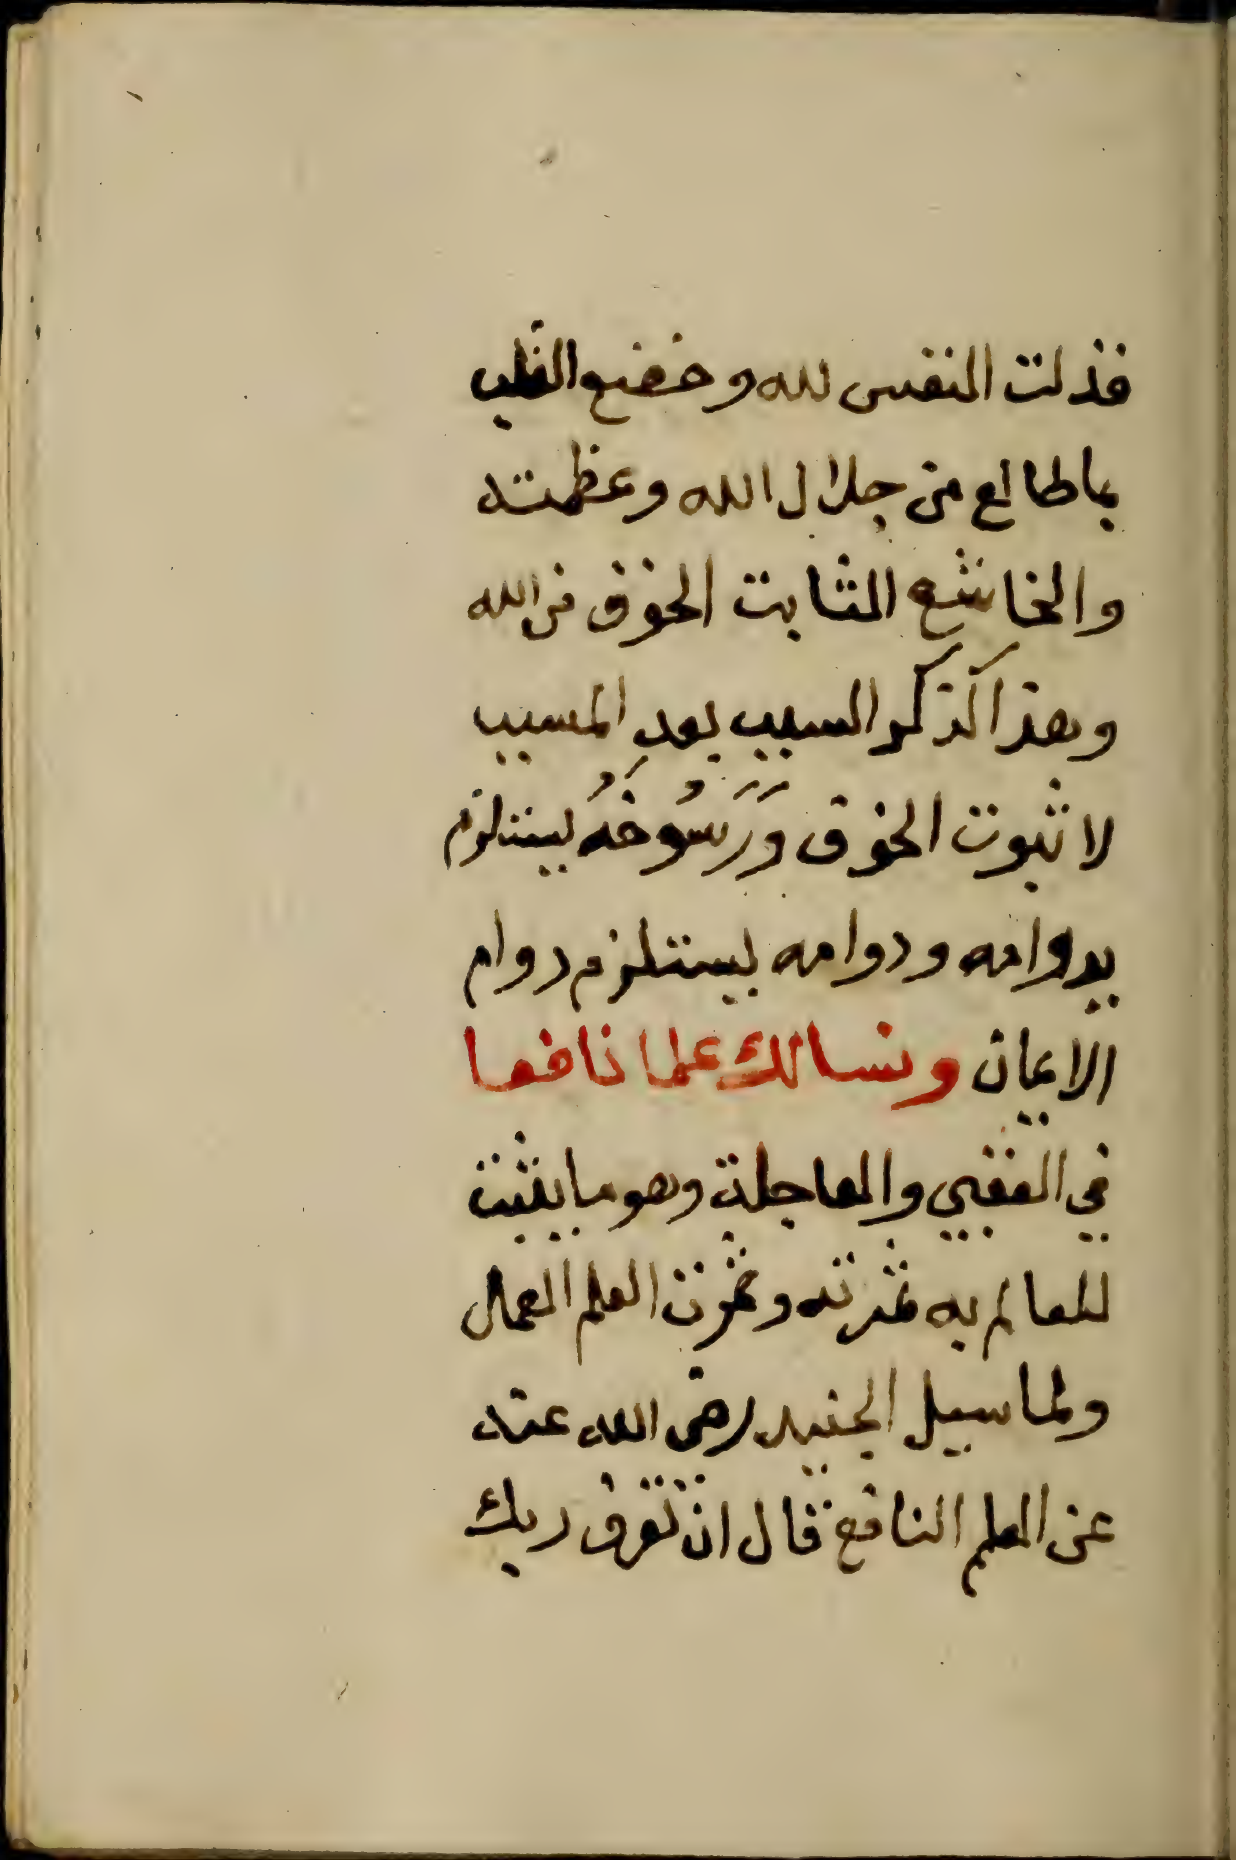 فذلت النفس لله وخضع القلب
بما طالع من جلال الله وعظمته
والخاشع الثابت الخوف من الله
وهذا كذكر السبب بعد المسبب
لا ثبوت الخوف وَرَسُوخُهُ يستلزم
بدوامه ودوامه يستلزم دوام
الايمان ونسالك علما نافعا
في العقبي والعاجلة وهو ما يثبت
للعالم به ثمرته وثمرت العلم العمل
ولما سيل الجنيد رضى الله عنه
عن العلم النافع قال ان تعرف ربك